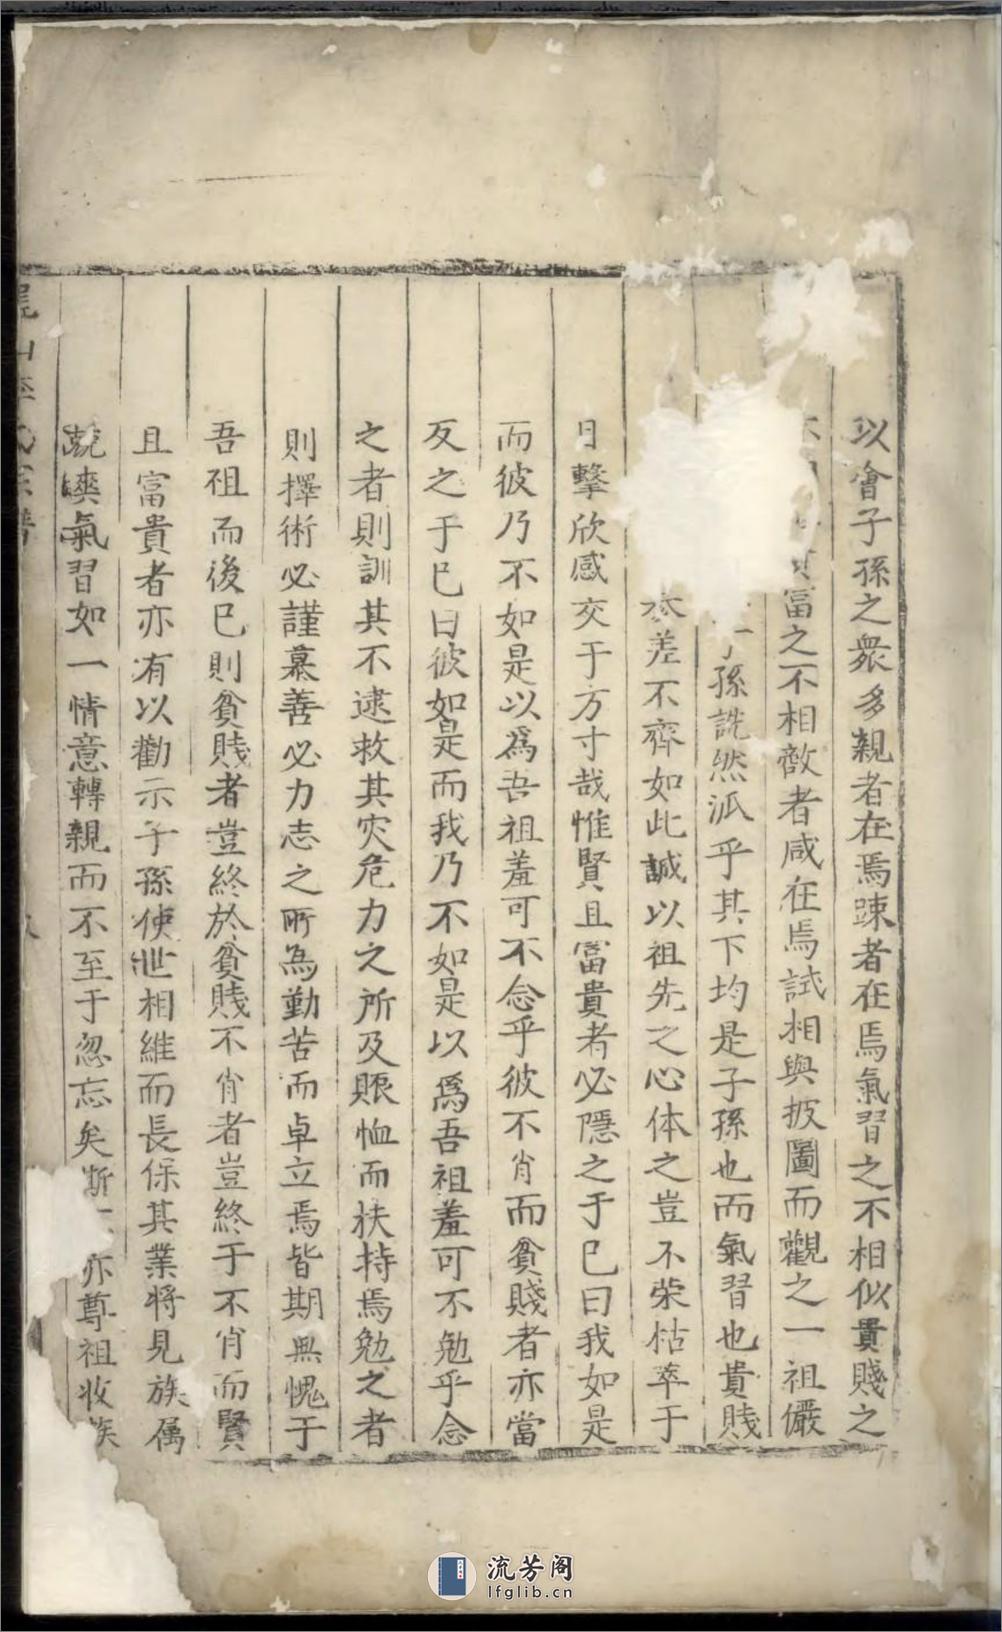 以會子孫之衆多親者在焉踈者在焉氣習之不相似貴賤之
富之不相敵者咸在焉試相與披圖而觀之一祖儼
孫詵然派乎其下均是子孫也而氣習也貴賤
差不齊如此誠以祖先之心体之豈不荣枯萃于
目擊欣感交于方寸哉惟賢且富貴者必隱之于已曰我如是
而彼乃不如是以爲吾祖羞可不念乎彼不肖而貧賤者亦當
反之于已曰彼如是而我乃不如是以爲吾祖羞可不勉乎念
之者則訓其不逮救其灾危力之所及賑恤而扶持焉勉之者
則擇術必謹慕善必力志之所為勤苦而卓立焉皆期無愧于
吾祖而後已則貧賤者豈終於貧賤不肖者豈終于不肖而賢
且富貴者亦有以勸示子孫使世相維而長保其業將見族属
氣習如一情意轉親而不至于忽忘矣斯亦尊祖收族
山李氏宗譜
流芳阁
lfglib.cn